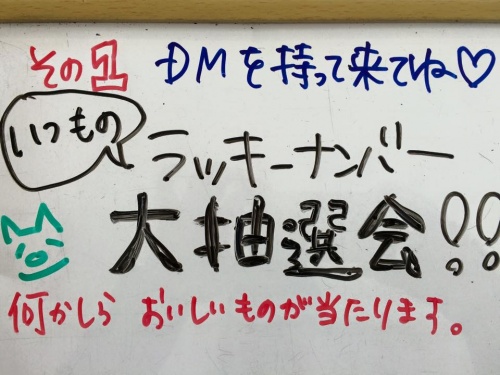 その1 DMを持って来てね♡
いつもの
ラッキーナンバー
大抽選会!!
何かしら おいしいものが当たります。